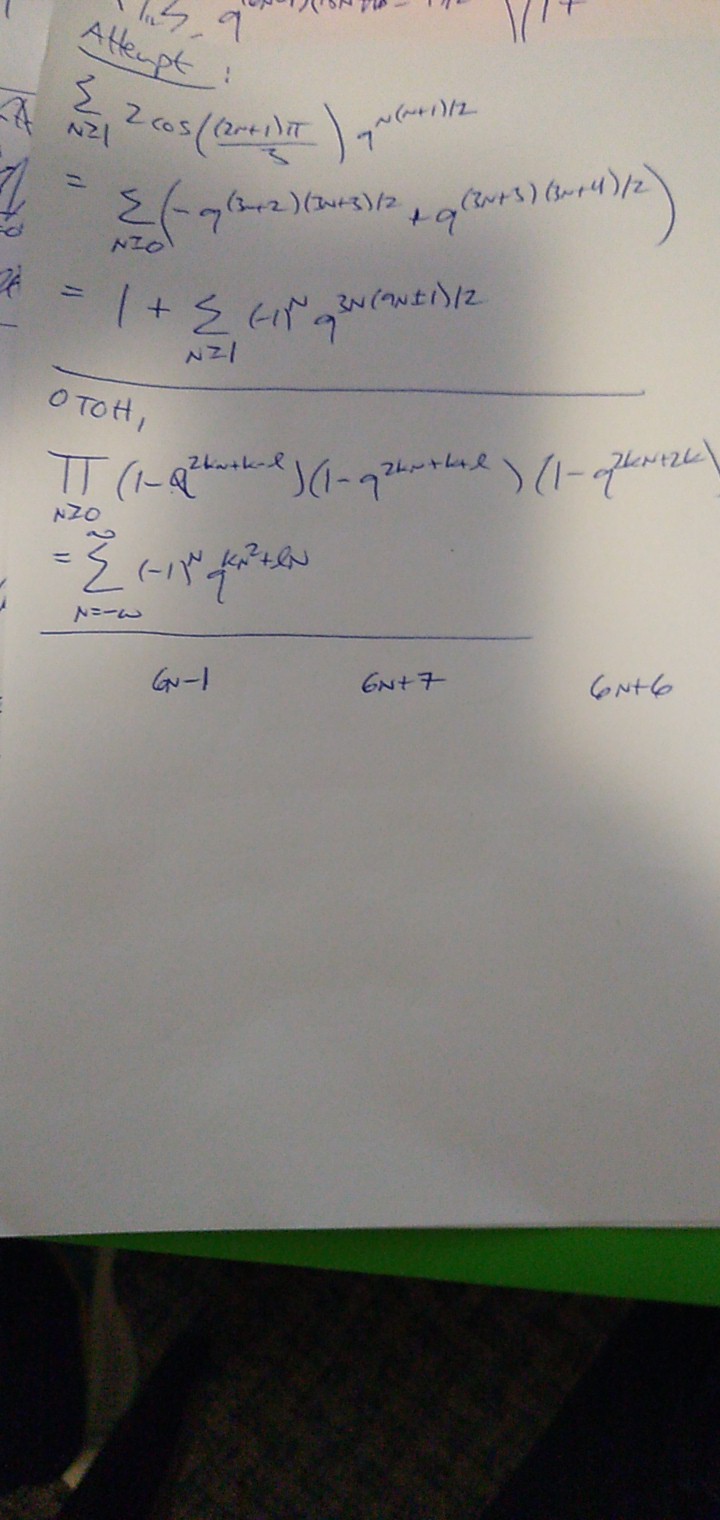 Attempt:
∑_{N≥1} 2 cos((2n+1)π/3) q^{n(n+1)/2}
= ∑_{N≥0} (-q^{(3n+2)(3n+3)/2} + q^{(3n+3)(3n+4)/2})
= 1 + ∑_{N≥1} (-1)^N q^{3N(9N±1)/2}
OTOH,
∏_{N≥0} (1-q^{2kn+k-l})(1-q^{2kn+k+l})(1-q^{2kn+2k})
= ∑_{N=-∞}^{∞} (-1)^N q^{kN²+lN}
6N-1 6N+7 6N+6